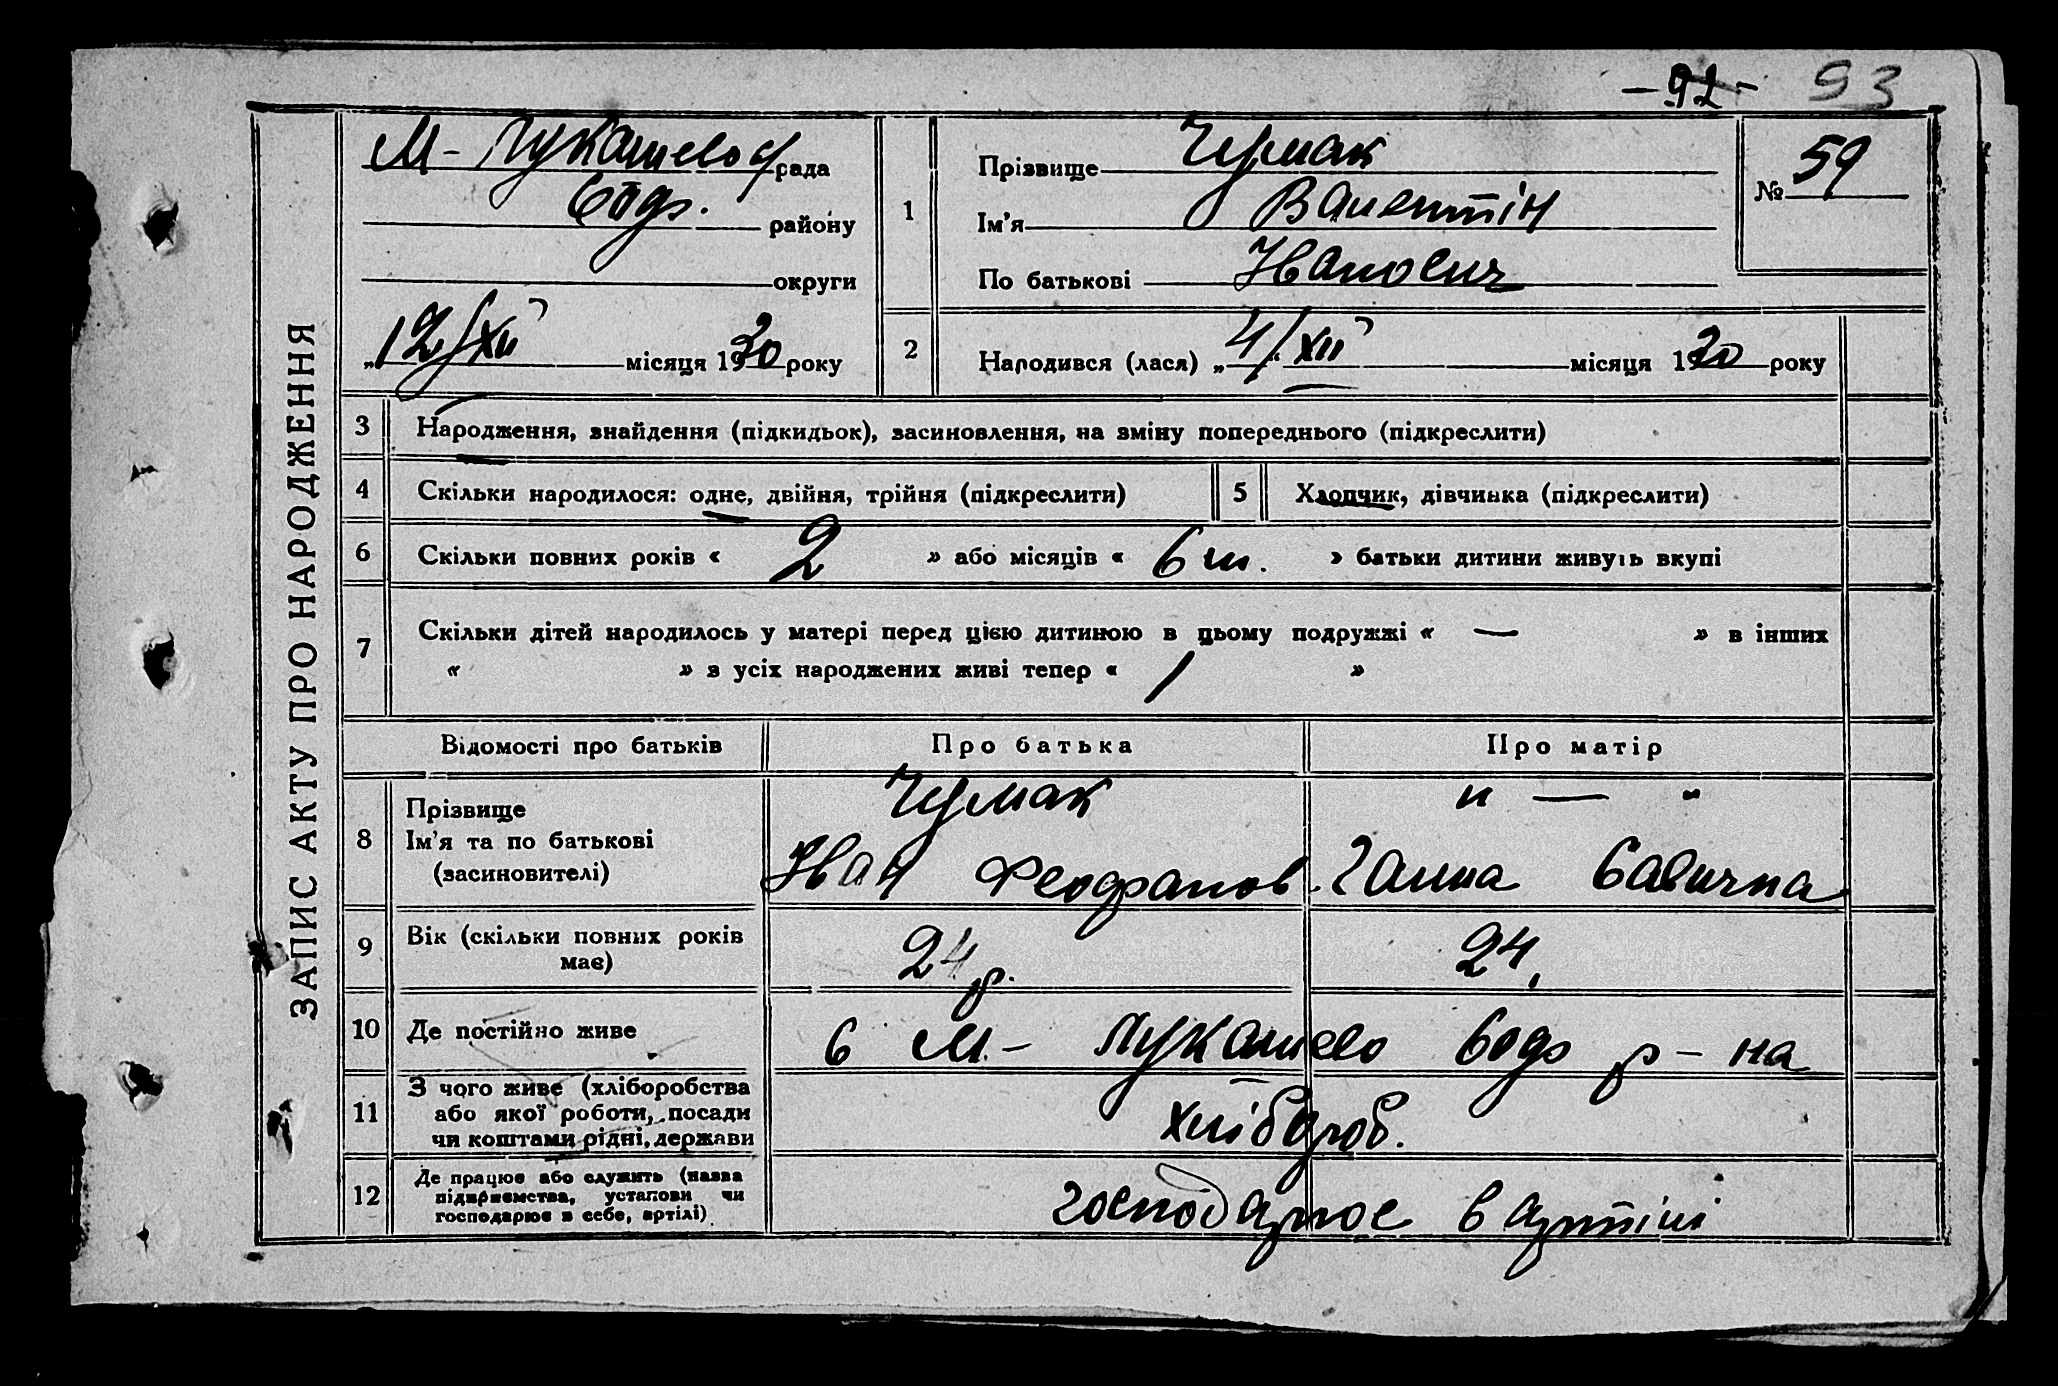 – 92 – 93
ЗАПИС АКТУ ПРО НАРОДЖЕННЯ
М- Лукашевос рада
району
округи
„12/XII місяця 1930 року
1
Прізвище Чумак
Ім'я Валентін
По батькові Іванович
№ 59
2
Народився (лася) „4/„ XII місяця 1930 року
3 Народження, знайдення (підкидьок), засиновлення, на зміну попереднього (підкреслити)
4 Скільки народилося: одне, двійня, трійня (підкреслити)
5 Хлопчик, дівчинка (підкреслити)
6 Скільки повних років « 2 » або місяців « 6 м. » батьки дитини живуть вкупі
7 Скільки дітей народилось у матері перед цією дитиною в цьому подружжі « — » в інших
« » з усіх народжених живі тепер « 1 »
Відомості про батьків Про батька Про матір
8 Прізвище
Ім'я та по батькові
(засновителі)
Чумак
Іван Феофанов.
„ — "
Ганна Савична
9 Вік (скільки повних років
має)
24 р. 24,
10 Де постійно живе в М.- Лукашево р-на
11 З чого живе (хліборобства
або якої роботи, посади
чи коштами рідні, держави
хлібороб.
12 Де працює або служить (назва
підприємства, установи чи
господарює в себе, артілі)
господарює в артілі